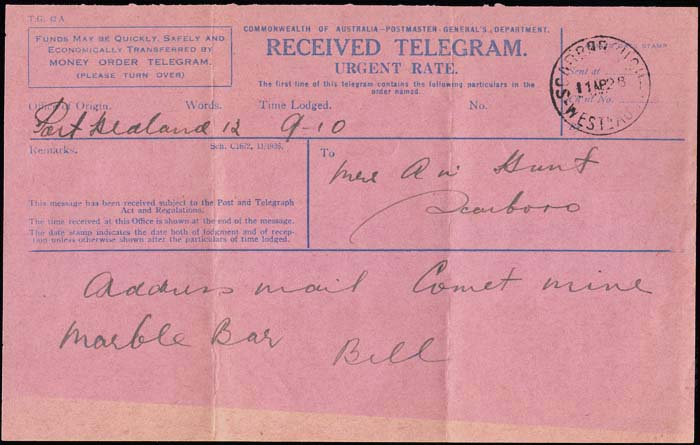 T.G. 42A
FUNDS MAY BE QUICKLY, SAFELY AND
ECONOMICALLY TRANSFERRED BY
MONEY ORDER TELEGRAM.
(PLEASE TURN OVER)
COMMONWEALTH OF AUSTRALIA-POSTMASTER-GENERAL'S DEPARTMENT.
RECEIVED TELEGRAM.
URGENT RATE.
The first line of this telegram contains the following particulars in the
order named.
Office of Origin. Words. Time Lodged. No.
STAMP
Sent at
No.
SCARBOROUGH
11AP28
WEST
Port Hedland 12 9-10
Remarks.
Sch. C.1672, 11/1936.
This message has been received subject to the Post and Telegraph
Act and Regulations.
The time received at this Office is shown at the end of the message.
The date stamp indicates the date both of lodgment and of recep-
tion unless otherwise shown after the particulars of time lodged.
To
Mrs A W Hunt
Scarboro
Address mail Comet mine
Marble Bar Bill